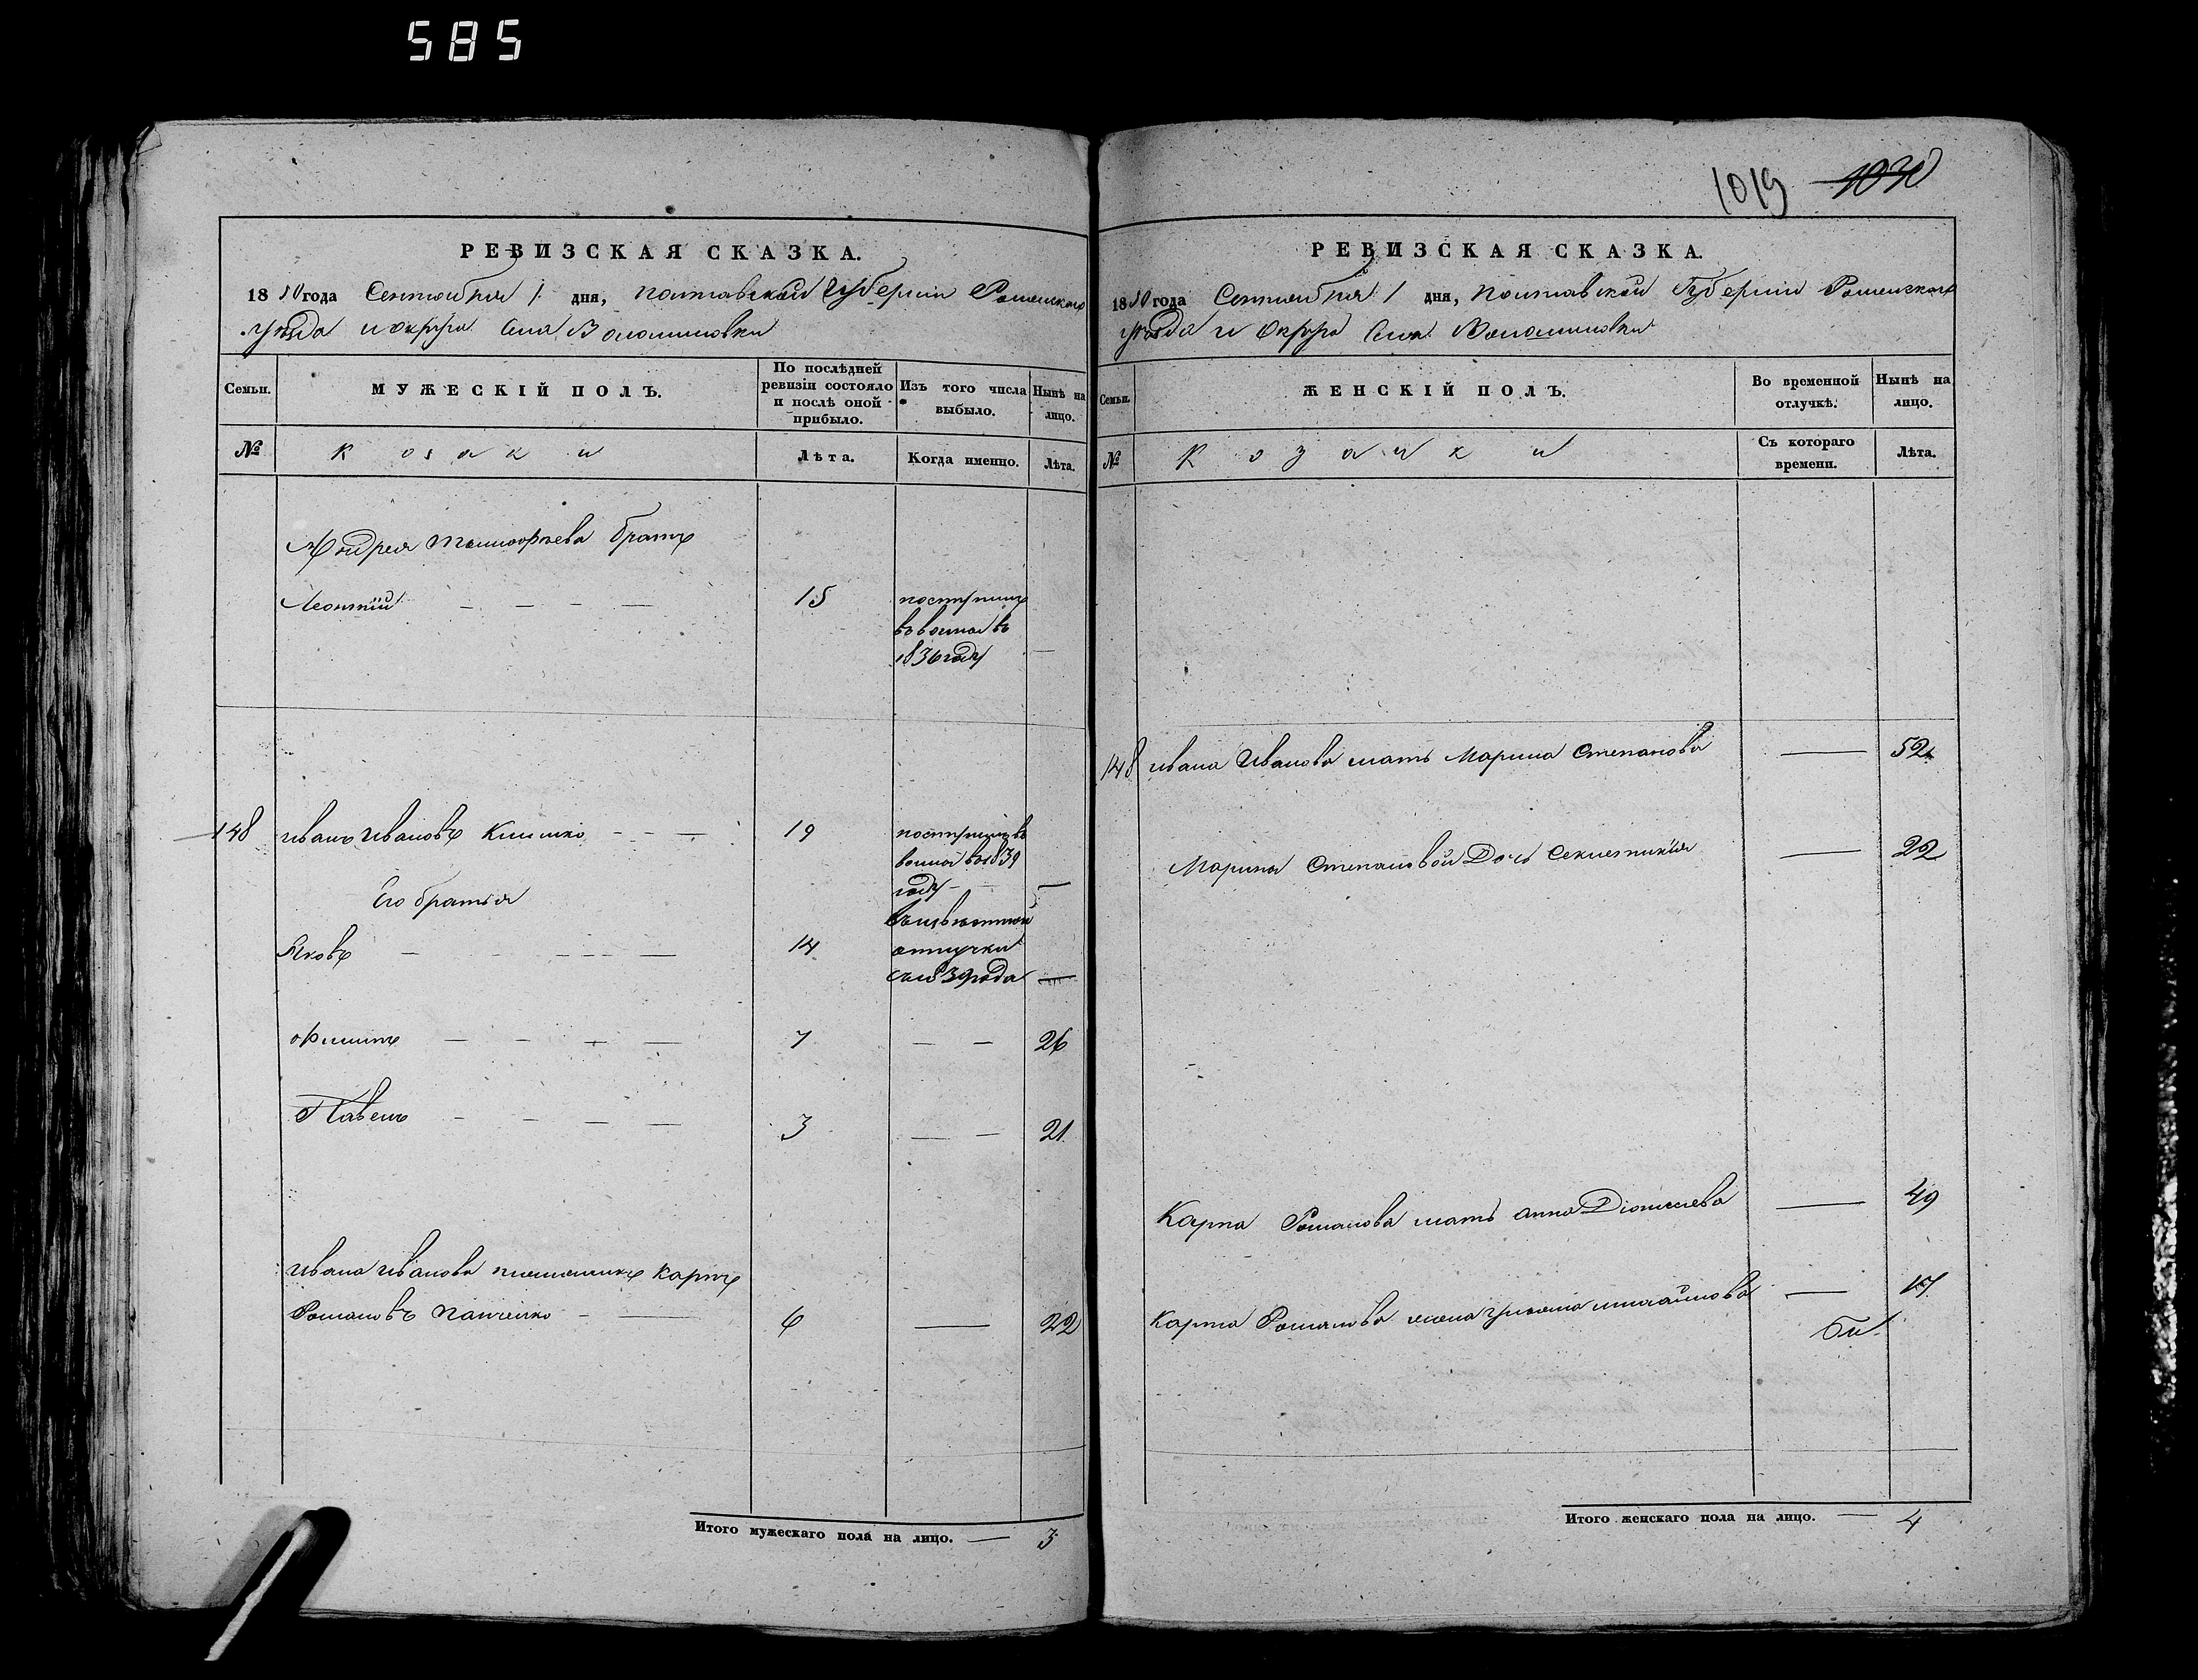 585
1019 1030
РЕВИЗСКАЯ СКАЗКА.
1850 года Сентября 1 дня, Полтавской Губерніи Роменскаго
уѣзда и округа Села Волошиновки
Семьи.
МУЖЕСКІЙ ПОЛЪ.
По послѣдней ревизіи состояло и послѣ оной прибыло.
Изъ того числа выбыло.
Нынѣ на лицо.
№
Козаки
Лѣта.
Когда именно.
Лѣта.
Андрея братъ
Леонтій — — — — 15 поступилъ
въ войска въ
1836 году —
148 Иванъ Ивановъ 19 поступилъ въ
войска въ 1839
году — —
Его братья
Яковъ — — — — 14
отлучки
съ 1839 года —
Филипъ — — — — 7 — — 26
Павелъ — — — — 3 — — 21
Ивана Иванова племянникъ Карпъ
Романовъ Панченко — — 6 — 22
Итого мужескаго пола на лицо. — 3
РЕВИЗСКАЯ СКАЗКА.
1850 года Сентября 1 дня, Полтавской Губерніи Роменскаго
уѣзда и Округа Села Волошиновки
Семьи.
ЖЕНСКІЙ ПОЛЪ.
Во временной отлучкѣ.
Нынѣ на лицо.
№
Козачки
Съ котораго времени.
Лѣта.
148 Ивана Иванова мать Марина Степанова — 52
Марины Степановой Дочь — 22
Карпа Романова мать Анна Діонисіева — 49
Карпа Романова жена Ульяна Михайлова — 17
Итого женскаго пола на лицо. — 4